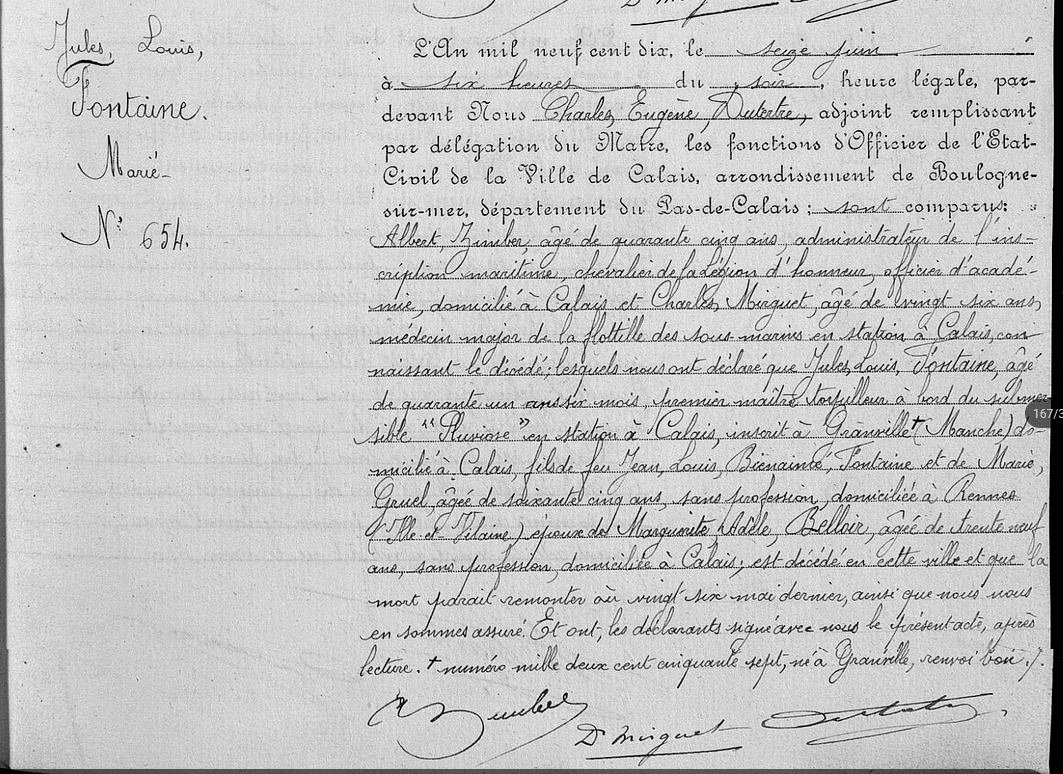 Jules, Louis,
Fontaine.
Marié
N° 654.
L'An mil neuf cent dix, le seize juin
à six heures du soir, heure légale, par-
devant Nous Charles, Eugène, Dutertre, adjoint remplissant
par délégation du Maire, les fonctions d'Officier de l'Etat-
Civil de la Ville de Calais, arrondissement de Boulogne-
sur-mer, département du Pas-de-Calais ; sont comparus:
Albert, Zimber, âgé de quarante cinq ans, administrateur de l'ins-
cription maritime, chevalier de la Légion d'honneur, officier d'acadé-
mie, domicilié à Calais et Charles, Mirguet, âgé de vingt six ans,
médecin major de la flottille des sous-marins en station à Calais, con-
naissant le décédé; lesquels nous ont déclaré que Jules, Louis, Fontaine, âgé
de quarante un ans six mois, premier maître torpilleur à bord du submer
sible "Pluviose" en station à Calais, inscrit à Granville † (Manche) do-
micilié à Calais, fils de feu Jean, Louis, Bienaimé, Fontaine et de Marie,
Gruel, âgée de soixante cinq ans, sans profession, domiciliée à Rennes
(Ille-et-Vilaine) époux de Marguerite, Adèle, Belloir, âgée de trente neuf
ans, sans profession, domiciliée à Calais; est décédé en cette ville et que la
mort parait remonter au vingt six mai dernier, ainsi que nous nous
en sommes assuré. Et ont, les déclarants signé avec nous le présent acte, après
lecture. † numéro mille deux cent cinquante sept, né à Granville, renvoi bon ./.
Dr Mirguet
167/3